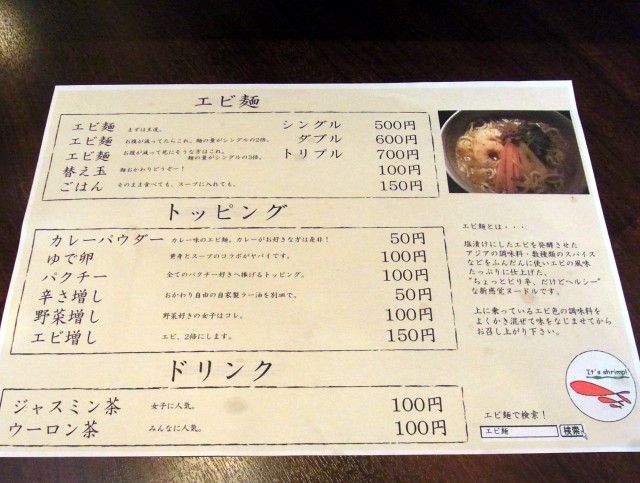 エビ麺
エビ麺 まずは王道。 シングル 500円
エビ麺 お腹が減ってたらこれ。麺の量がシングルの2倍。 ダブル 600円
エビ麺 お腹が減って死にそうな方はこれ。麺の量がシングルの3倍。 トリプル 700円
替え玉 麺おかわりどうぞー! 100円
ごはん そのまま食べても、スープに入れても。 150円
トッピング
カレーパウダー カレー味のエビ麺。カレーがお好きな方は是非! 50円
ゆで卵 黄身とスープのコラボがヤバイです。 100円
パクチー 全てのパクチー好きへ捧げるトッピング。 100円
辛さ増し おかわり自由の自家製ラー油を別皿で。 50円
野菜増し 野菜好きの女子はコレ。 100円
エビ増し エビ、2倍にします。 150円
ドリンク
ジャスミン茶 女子に人気。 100円
ウーロン茶 みんなに人気。 100円
エビ麺とは・・・
塩漬けにしたエビを発酵させた
アジアの調味料・数種類のスパイス
などをふんだんに使いエビの風味
たっぷりに仕上げた、
"ちょっとピリ辛、だけどヘルシー"
な新感覚ヌードルです。
上に乗っているエビ色の調味料を
よくかき混ぜて味をなじませてから
お召し上がり下さい。
It's shrimp!
エビ麺で検索!
エビ麺 検索